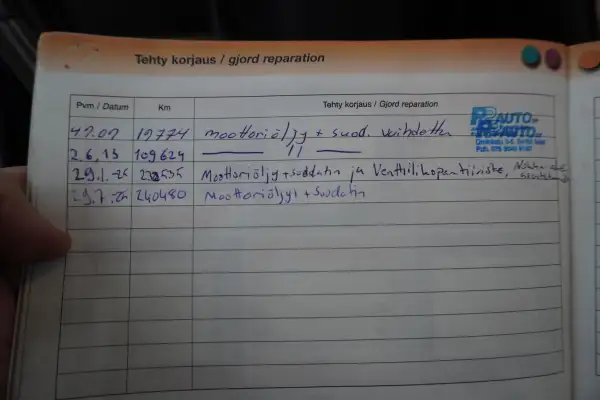 Tehty korjaus / gjord reparation
Pvm. / Datum Km Tehty korjaus / Gjord reparation
19774 moottoriöljy + suod. vaihdettu AUTO
2.6.13 109624 ——— || ———
29.1.-25 Moottoriöljy + suodatin ja Venttiilikopantiiviste,
29.7.-25 240480 Moottoriöljyt + Suodatin